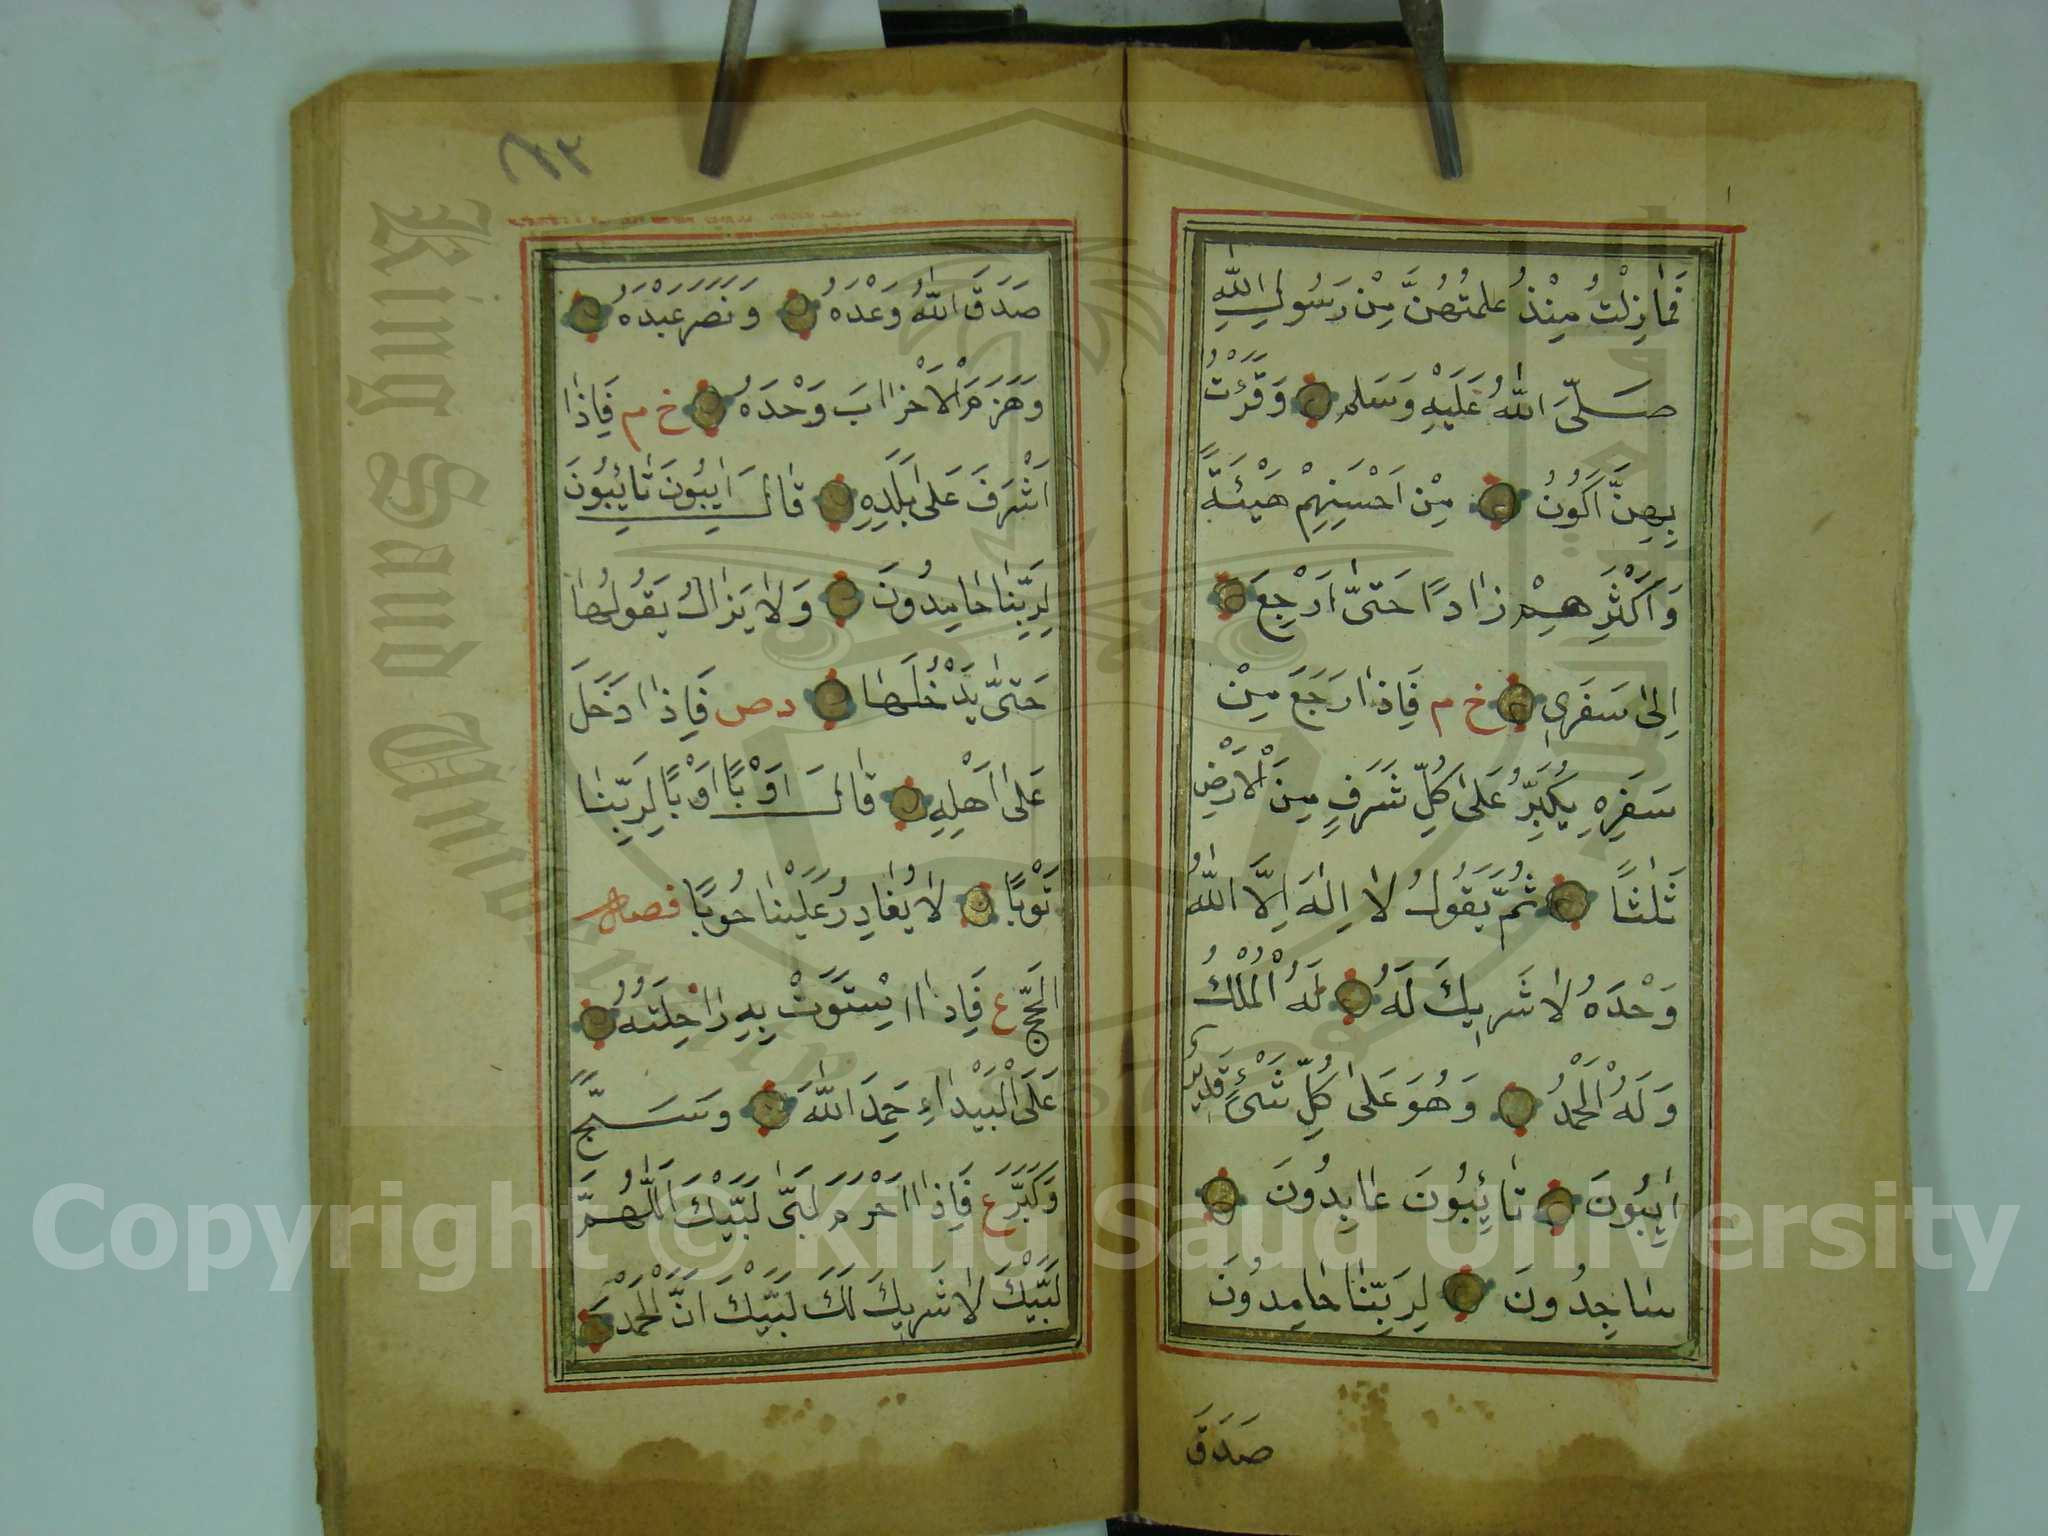 فَمَازِلْتُ مِنْذُ عَلِمتُهُنَّ مِنْ رَسُولِ اللّٰهِ
صَلَّى اللّٰهُ عَلَيْهِ وَسَلم وَقَرَئْتُ
بِهِنَّ اَكُونُ مِنْ اَحْسَنِهِمْ هَيْئَةً
وَاَكْثَرِهِمْ زَادًا حَتىّٰ اَرْجِعَ
اِلىٰ سَفَرِى خ م فَاِذَا رَجَعَ مِنْ
سَفَرِهِ يُكَبِّرُ عَلىٰ كُلِّ شَرَفٍ مِنَ الْاَرْضِ
ثَلٰثًا ثُمَّ يَقُولُ لَا اِلٰهَ اِلَّا اللّٰهُ
وَحْدَهُ لَا شَرِيكَ لَهُ لَهُ الْمُلْكُ
وَلَهُ الْحَمْدُ وَهُوَ عَلىٰ كُلِّ شَىْءٍ قَدِيرٌ
اٰيِبُونَ تَائِبُونَ عَابِدُونَ
سَاجِدُونَ لِرَبِّنَا حَامِدُونَ
صَدَقَ
٦٣
صَدَقَ اللّٰهُ وَعْدَهُ وَنَصَرَ عَبْدَهُ
وَهَزَمَ الْاَحْزَابَ وَحْدَهُ خ م فَاِذَا
اَشْرَفَ عَلىٰ بَلَدِهِ قَالَ اٰيِبُونَ تَائِبُونَ
لِرَبِّنَا حَامِدُونَ وَلَا يَزَالُ يَقُولُهَا
حَتىّٰ يَدْخُلَهَا د ص فَاِذَا دَخَلَ
عَلىٰ اَهْلِهِ قَالَ اَوْبًا اَوْبًا لِرَبِّنَا
تَوْبًا لَا يُغَادِرُ عَلَيْنَا حُوبًا فصل
الْحَجّ ع فَاِذَا اسْتَوَتْ بِهِ رَاحِلَتُهُ
عَلَى الْبَيْدَاءِ حَمِدَ اللّٰهَ وَسَبَّحَ
وَكَبَّرَ ع فَاِذَا اَحْرَمَ لَبىّٰ لَبَّيْكَ اَللّٰهُمَّ
لَبَّيْكَ لَا شَرِيكَ لَكَ لَبَّيْكَ اَنَّ الْحَمْدَ
King Saud University
Copyright © King Saud University